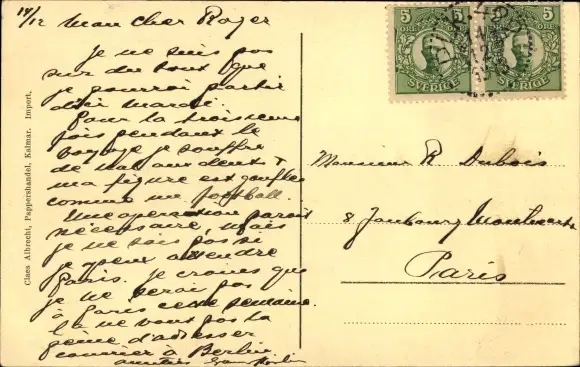 14/12 Mon cher Roger
Je ne suis pas
sur du tout que
je pourrai partir
d'ici mardi.
Pour la troisieme
fois pendant le
voyage je souffre
de mal aux dents &
ma figure est gonflée
comme un football.
Une operation parait
nécessaire, mais
je ne sais pas si
je peux attendre
Paris. Je crains que
je ne serai pas
à Paris cette semaine.
Ca ne vaut pas la
peine d'adresser
courrier à Berlin
amitiés
Claes Albrecht, Pappershandel, Kalmar. Import.
5 5
ÖRE ÖRE
SVERIGE SVERIGE
Monsieur R Dubois
8 Faubourg Montmartre
Paris